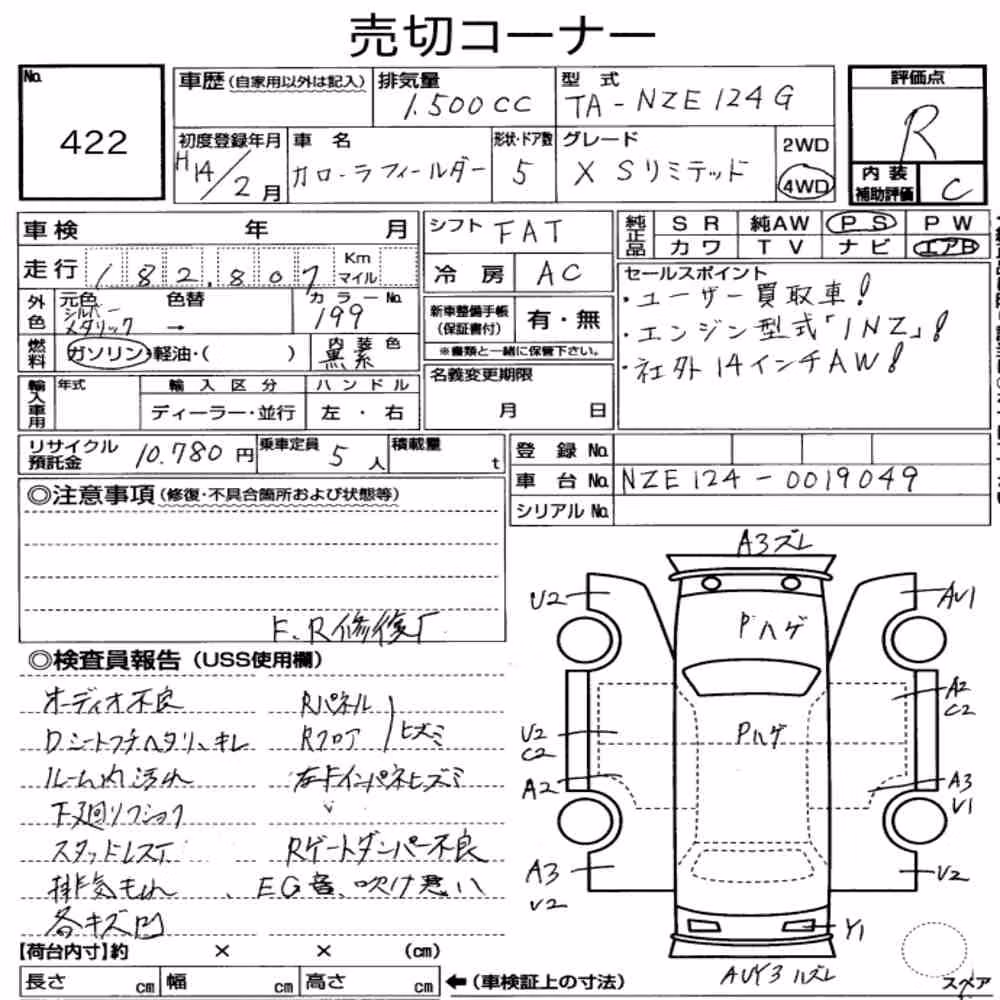 売切コーナー
No.
422
車歴(自家用以外は記入)
排気量
1.500cc
型式
TA-NZE124G
評価点
R
初度登録年月
H14/2月
車名
カローラフィールダー
形状・ドア数
5
グレード
X Sリミテッド
2WD
4WD
内装
補助評価
C
車検 年 月
シフト
FAT
純正品
SR 純AW PS PW
カワ TV ナビ エアB
走行
182,807
Km
マイル
冷房
AC
セールスポイント
・ユーザー買取車!
・エンジン型式「1NZ」!
・社外14インチAW!
外色
元色
シルバーメタリック
色替
→
カラーNo.
199
新車整備手帳
(保証書付)
有・無
※書類と一緒に保管下さい。
燃料
ガソリン・軽油・( )
内装色
黒系
名義変更期限
月 日
輸入車用
年式
輸入区分
ディーラー・並行
ハンドル
左・右
リサイクル預託金
10.780円
乗車定員
5人
積載量
t
登録No.
車台No.
NZE124-0019049
シリアルNo.
◎注意事項(修復・不具合箇所および状態等)
F、R修復有
◎検査員報告(USS使用欄)
オーディオ不良
Rパネル
Dシートフチヘタリ、キレ
Rフロア
ヒズミ
ルーム内汚れ
左カドインパネヒズミ
下廻りフショク
スタッドレスT
Rゲートダンパー不良
排気もれ
、EG音、吹け悪い
各キズ凹
A3ズレ
U2
AU1
Pハゲ
A2
C2
U2
C2
Pハゲ
A2
A3
U1
A3
U2
U2
Y1
AUY3
スペア
【荷台内寸】約 × × (cm)
長さ cm 幅 cm 高さ cm
←(車検証上の寸法)